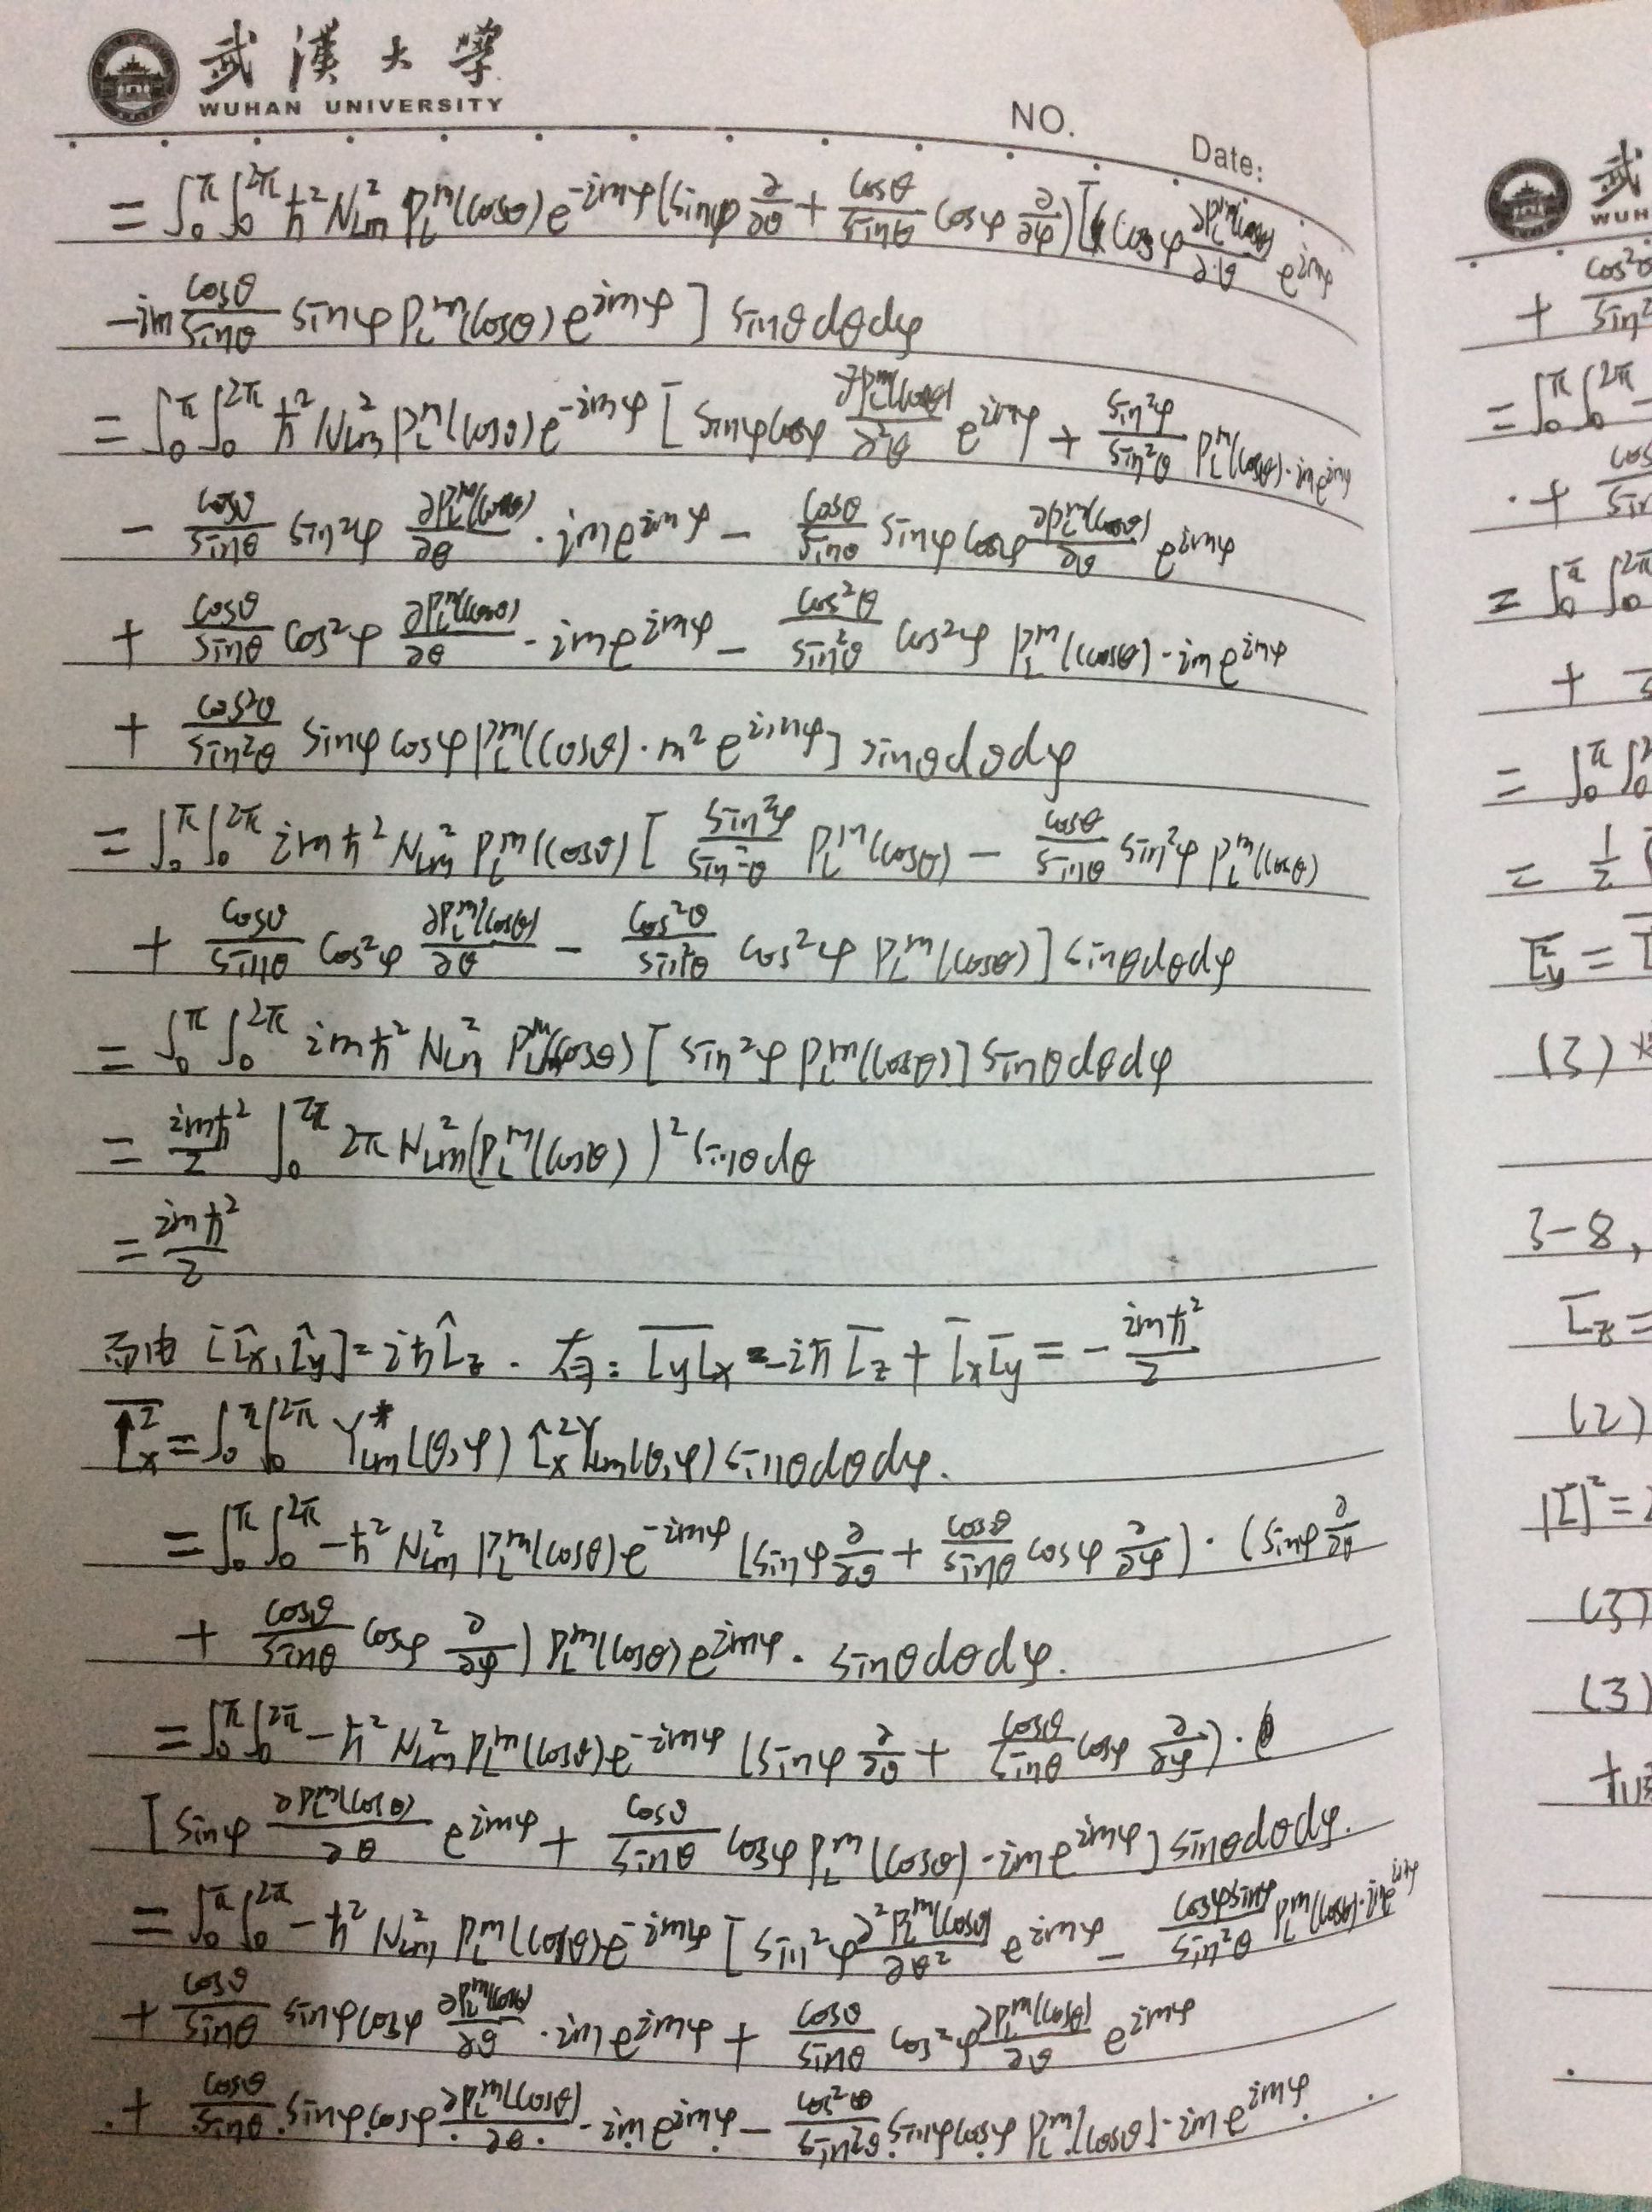 武漢大學
WUHAN UNIVERSITY
NO.
Date:
= ∫₀^π ∫₀^{2π} ħ² N_{Lm}² P_L^m(cosθ) e^{-imφ} (sinφ ∂/∂θ + cosθ/sinθ cosφ ∂/∂φ) [cosφ ∂P_L^m(cosθ)/∂θ e^{imφ}
- im cosθ/sinθ sinφ P_L^m(cosθ) e^{imφ}] sinθdθdφ
= ∫₀^π ∫₀^{2π} ħ² N_{Lm}² P_L^m(cosθ) e^{-imφ} [sinφcosφ ∂P_L^m(cosθ)/∂²θ e^{imφ} + sin²φ/sin²θ P_L^m(cosθ)·im e^{imφ}
- cosθ/sinθ sin²φ ∂P_L^m(cosθ)/∂θ · im e^{imφ} - cosθ/sinθ sinφcosφ ∂P_L^m(cosθ)/∂θ e^{imφ}
+ cosθ/sinθ cos²φ ∂P_L^m(cosθ)/∂θ · im e^{imφ} - cos²θ/sin²θ cos²φ P_L^m(cosθ)·im e^{imφ}
+ cos²θ/sin²θ sinφcosφ P_L^m(cosθ)·m² e^{imφ}] sinθdθdφ
= ∫₀^π ∫₀^{2π} imħ² N_{Lm}² P_L^m(cosθ) [sin²φ/sin²θ P_L^m(cosθ) - cosθ/sinθ sin²φ P_L^m(cosθ)
+ cosθ/sinθ cos²φ ∂P_L^m(cosθ)/∂θ - cos²θ/sin²θ cos²φ P_L^m(cosθ)] sinθdθdφ
= ∫₀^π ∫₀^{2π} imħ² N_{Lm}² P_L^m(cosθ) [sin²φ P_L^m(cosθ)] sinθdθdφ
= imħ²/2 ∫₀^{2π} 2π N_{Lm}² (P_L^m(cosθ))² sinθdθ
= imħ²/2
而由 [L̂x, L̂y] = iħL̂z. 有: \overline{LyLx} = -iħ L̄z + L̄xL̄y = - imħ²/2
\overline{Lx²} = ∫₀^π ∫₀^{2π} Y*_{Lm}(θ,φ) L̂x² Y_{Lm}(θ,φ) sinθdθdφ.
= ∫₀^π ∫₀^{2π} -ħ² N_{Lm}² P_L^m(cosθ) e^{-imφ} (sinφ ∂/∂θ + cosθ/sinθ cosφ ∂/∂φ) · (sinφ ∂/∂θ
+ cosθ/sinθ cosφ ∂/∂φ) P_L^m(cosθ) e^{imφ} · sinθdθdφ.
= ∫₀^π ∫₀^{2π} -ħ² N_{Lm}² P_L^m(cosθ) e^{-imφ} (sinφ ∂/∂θ + cosθ/sinθ cosφ ∂/∂φ) ·
[sinφ ∂P_L^m(cosθ)/∂θ e^{imφ} + cosθ/sinθ cosφ P_L^m(cosθ)·im e^{imφ}] sinθdθdφ.
= ∫₀^π ∫₀^{2π} -ħ² N_{Lm}² P_L^m(cosθ) e^{-imφ} [sin²φ ∂²P_L^m(cosθ)/∂θ² e^{imφ} - cosφsinφ/sin²θ P_L^m(cosθ)·im e^{imφ}
+ cosθ/sinθ sinφcosφ ∂P_L^m(cosθ)/∂θ · im e^{imφ} + cosθ/sinθ cos²φ ∂P_L^m(cosθ)/∂θ e^{imφ}
+ cosθ/sinθ sinφcosφ ∂P_L^m(cosθ)/∂θ · im e^{imφ} - cos²θ/sin²θ sinφcosφ P_L^m(cosθ)·im e^{imφ}
武
WUH
+ cos²θ/sin²
= ∫₀^π ∫₀^{2π} -
+ cos/sin
= ∫₀^π ∫₀^{2π}
+
= ∫₀^π ∫₀²
= 1/2
\overline{Ly²} =
(3)
3-8,
L̄z =
(2)
|L|² =
(3)
(3)